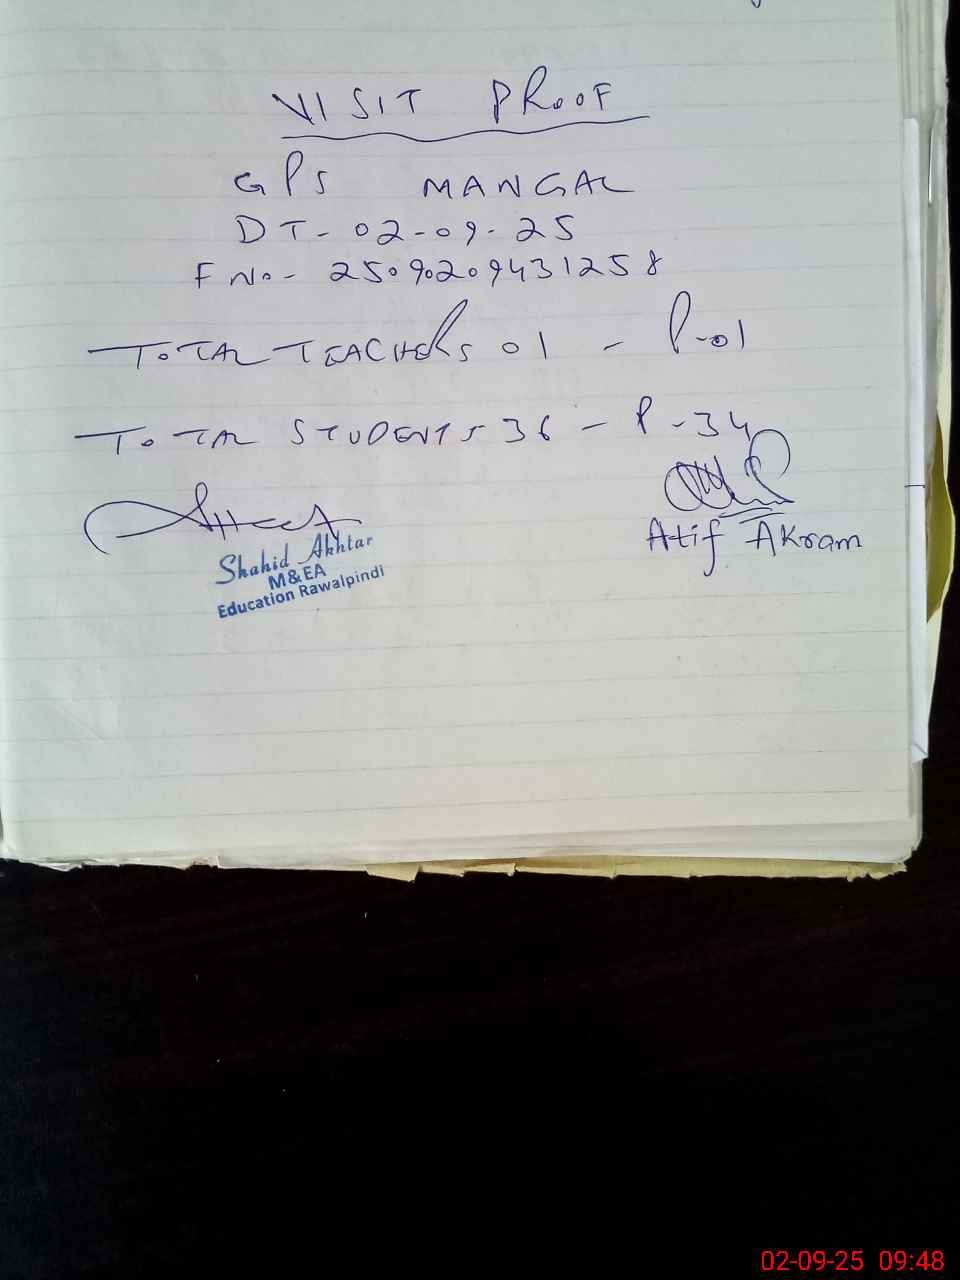 VISIT PROOF
GPS MANGAL
DT- 02-09-25
F No- 25090209431258
TOTAL TEACHERS 01 - P-01
TOTAL STUDENTS 36 - P-34
Shahid Akhtar
M&EA
Education Rawalpindi
Atif Akram
02-09-25 09:48